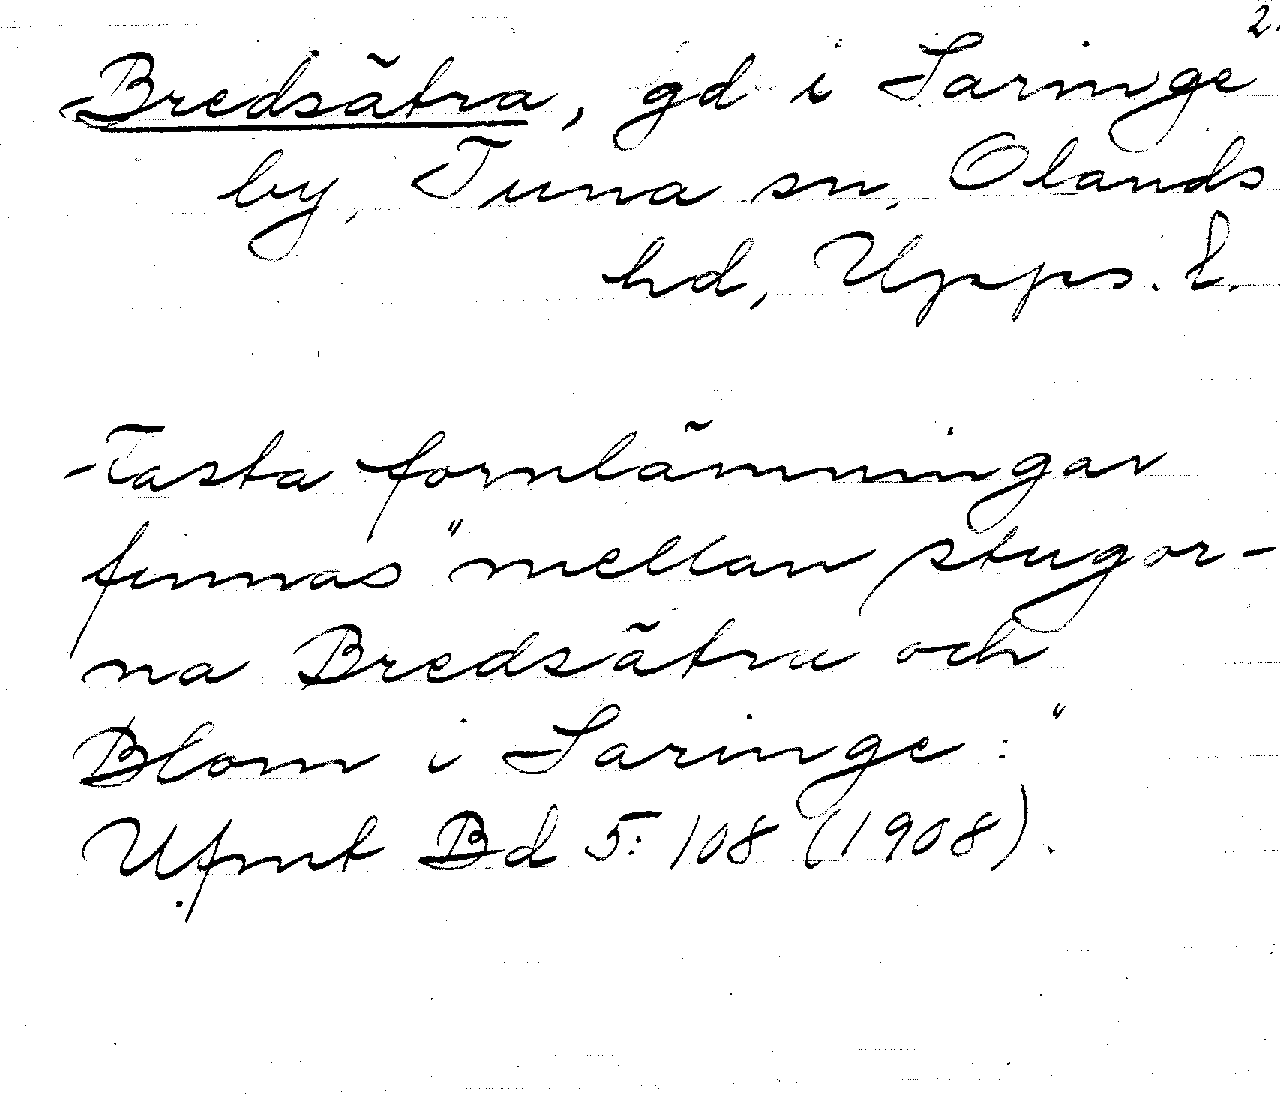 2.
Bredsätra, gd i Saringe
by, Tuna sn, Olands
hd, Upps. l.
Fasta fornlämningar
finnas "mellan stugor-
na Bredsätra och
Blom i Saringe:"
Ufmt Bd 5:108 (1908).